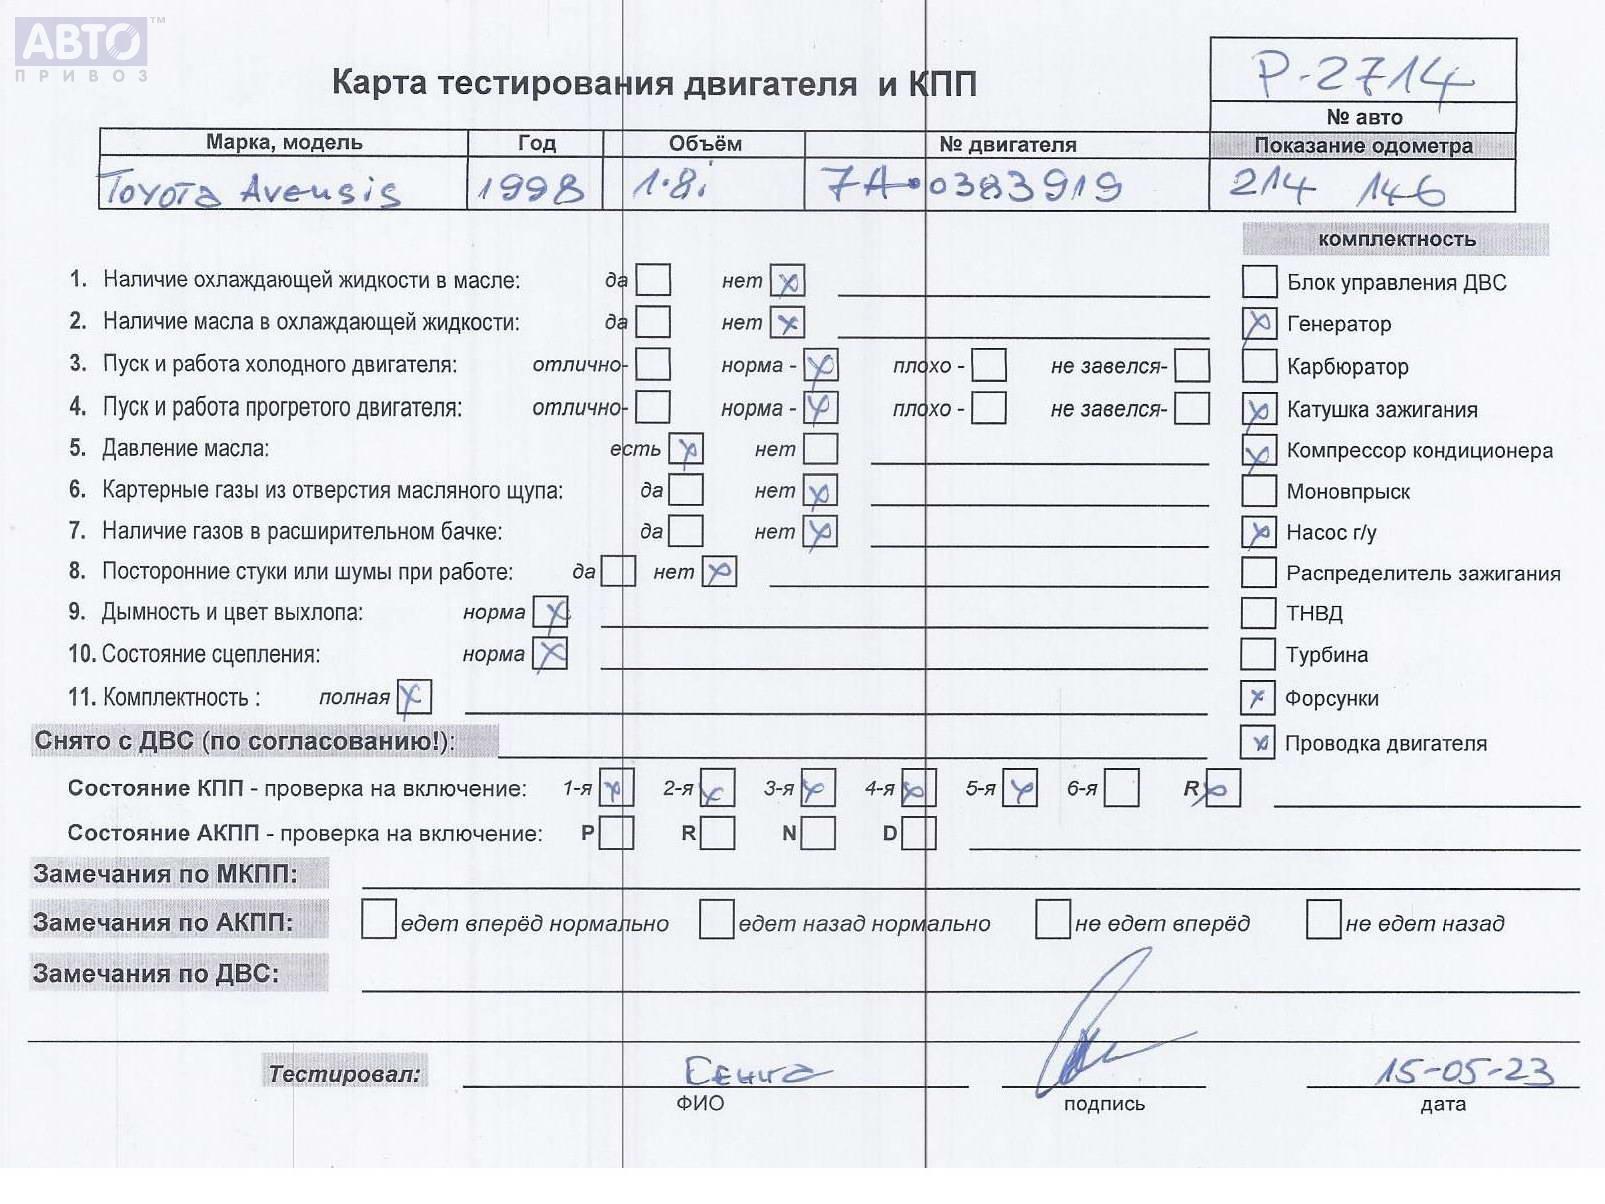 АВТО™
ПРИВОЗ
Карта тестирования двигателя и КПП
P-2714
№ авто
Марка, модель Год Объём № двигателя Показание одометра
Toyota Avensis 1998 1.8i 7A-0383919 214 146
комплектность
1. Наличие охлаждающей жидкости в масле: да нет x
Блок управления ДВС
2. Наличие масла в охлаждающей жидкости: да нет x
x Генератор
3. Пуск и работа холодного двигателя: отлично- норма - x плохо - не завелся-
Карбюратор
4. Пуск и работа прогретого двигателя: отлично- норма - x плохо - не завелся-
x Катушка зажигания
5. Давление масла: есть x нет
x Компрессор кондиционера
6. Картерные газы из отверстия масляного щупа: да нет x
Моновпрыск
7. Наличие газов в расширительном бачке: да нет x
x Насос г/у
8. Посторонние стуки или шумы при работе: да нет x
Распределитель зажигания
9. Дымность и цвет выхлопа: норма x
ТНВД
10. Состояние сцепления: норма x
Турбина
11. Комплектность : полная x
x Форсунки
Снято с ДВС (по согласованию!):
x Проводка двигателя
Состояние КПП - проверка на включение: 1-я x 2-я x 3-я x 4-я x 5-я x 6-я R x
Состояние АКПП - проверка на включение: P R N D
Замечания по МКПП:
Замечания по АКПП: едет вперёд нормально едет назад нормально не едет вперёд не едет назад
Замечания по ДВС:
Тестировал: 15-05-23
ФИО подпись дата